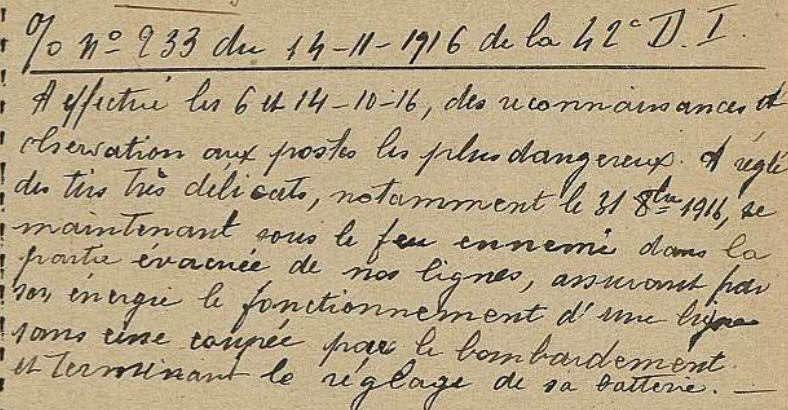 % nº 233 du 14-11-1916 de la 42e D.I.
A effectué les 6 et 14-10-16, des reconnaissances et
observation aux postes les plus dangereux. A réglé
des tirs très délicats, notamment le 31 8bre 1916, se
maintenant sous le feu ennemi dans la
partie évacuée de nos lignes, assurant par
son énergie le fonctionnement d'une ligne
sans cesse coupée par le bombardement
et terminant le réglage de sa batterie. —